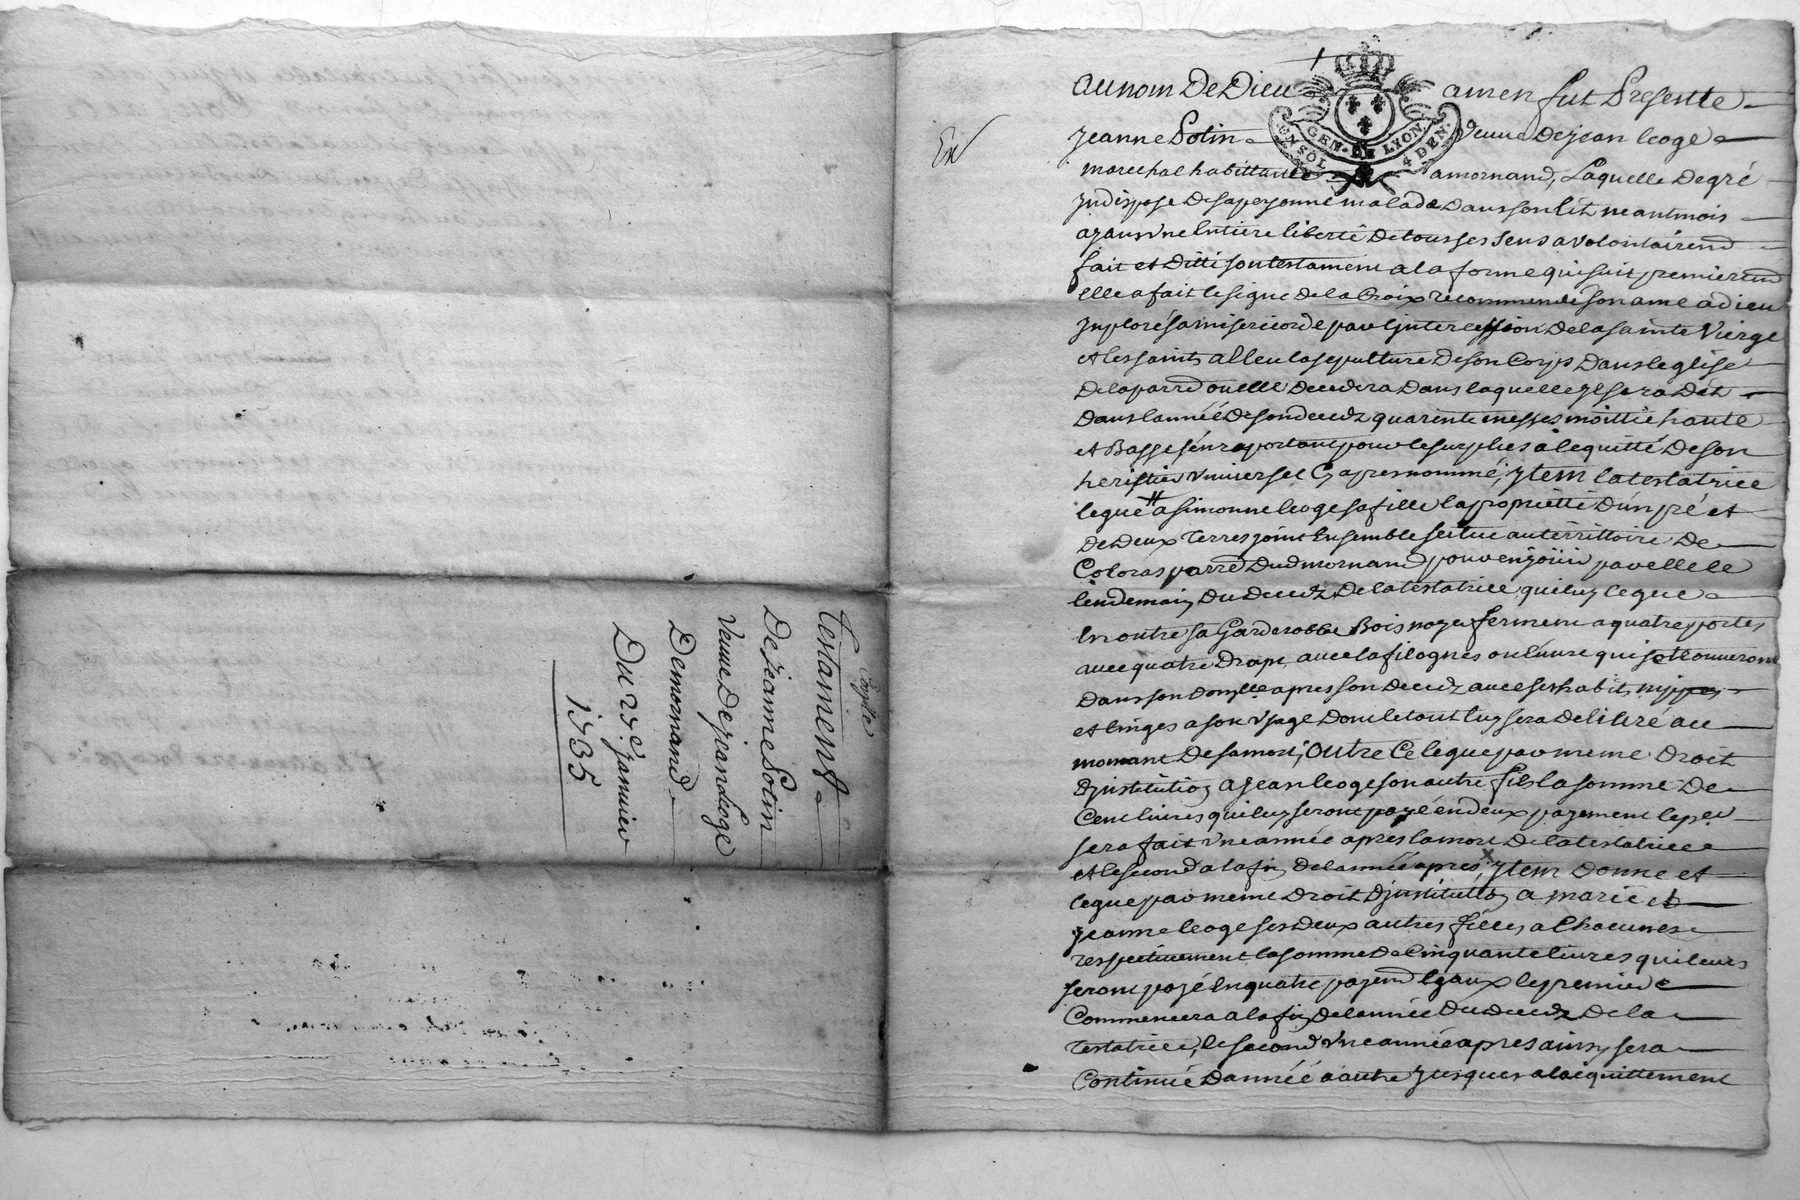 Copie
Testament
De jeanne Potin
Veuve De jean Leoge
De mornand
Du 25e. janvier
1735
Ex
GEN. DE LYON
UN SOL 4 DEN.
au nom De Dieu amen fut Presente
jeanne Potin veuve De jean leoge
marechal habittante a mornand, Laquelle De gré
jndispose De sa personne malade Dans son lit neantmois
ayant Vne Entiere liberté De tous ses sens a volontairemt
fait et Ditté son testament a la forme qui suit premieremt
elle a fait le signe De la Croix recommendé son ame a dieu
jnploré sa misericorde par l'jntercession De la sainte Vierge
et les saints alleu la sepulture De son Corps Dans leglise
De la parre ou elle Decedera Dans laquelle jl sera Dit
Dans lannéé De son decedz quarente messes moittié haute
et Basse s'en raportant pour le surplus a lequitté De son
heritier vniversel Cy apres nommé; jtem la testatrice
legue a simonne leoge sa fille la proprietté D'un pré et
De Deux terres joint Ensemble scitue au territtoire De
Coloras parre Dud mornand pour en joüir par elle le
lendemain Du Decedz De la testatrice qui luy legue
En outre sa Garderobbe Bois noyer fermant a quatre portes
avec quatre Draps avec la filognes ou l'euvre qui se trouveront
Dans son Domlle apres son Decedz avec ses habits nippes
et linges a son vsage Dont le tout luy sera Delibré au
momant De sa mort, outre Ce legue par meme Droit
Djnstitution a jean leoge son autre fils la somme De
Cent livres qui luy seront payé en deux payement le per
sera fait Vne année apres la mort De la testatrice
et le second a la fin De lannée apres, jtem Donne et
legue par meme Droit Djnstitution a marie et
jeanne leoge ses Deux autres filles a Chacunes
respectivement la somme De Cinquante livres qui leurs
seront payé En quatre payemt Egaux le premier
Commencera a la fin De lannée Du decedz De la
testatrice, le second Vne année apres ainsy sera
Continué Dannéé a autre jusques a lacquittement